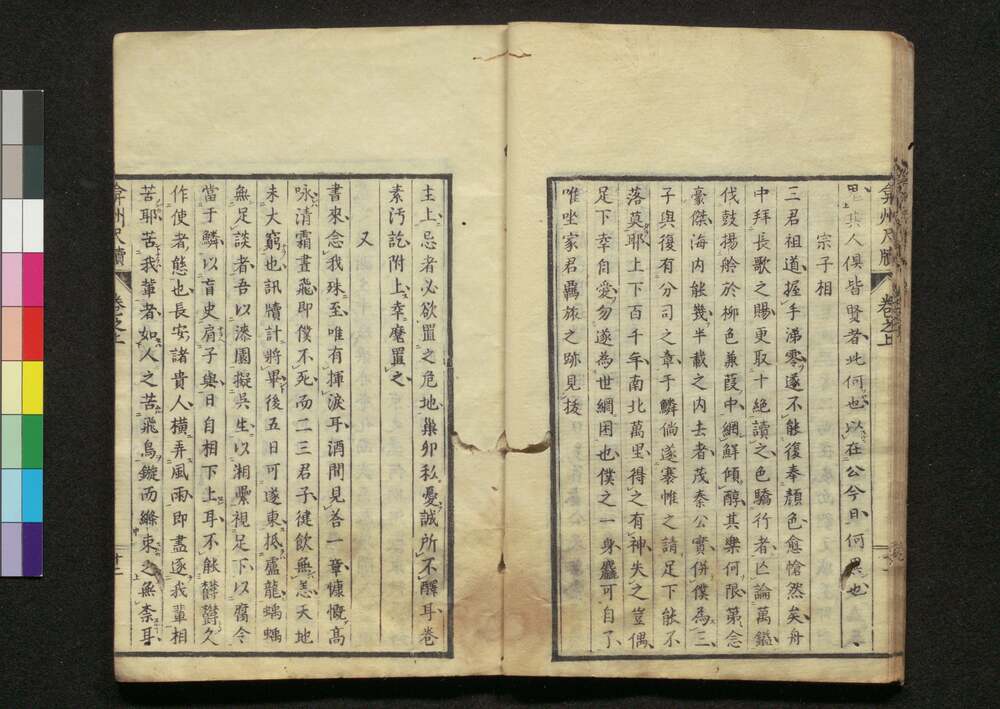 弇州尺牘 卷之上
人俱皆賢者此何也以在公今日何也
宗子相
三君祖道握手涕零遂不能復奉顏色愈愴然矣舟
中拜長歌之賜更取十絕讀之色驕行者亡論萬鎰
伐鼓揚舲於柳色蒹葭中網鮮傾醇其樂何限第念
豪傑海内能幾半載之内去者茂秦公實併僕為三
子與復有分司之章于鱗倘遂褰帷之請足下能不
落莫耶上下百千年南北萬里得之有神失之豈偶
足下幸自愛勿遂為世網困也僕之一身麤可自了
唯坐家君羈旅之跡見援
主上忌者必欲置之危地巢卵私憂誠所不釋耳卷
素汚訖附上幸麾置之
又
書來念我殊至唯有揮淚耳酒間見吾一章慷慨高
咏清霜晝飛即僕不死而二三君子健飲無恙天地
未大窮也訊牘計將畢後五日可遂東抵盧龍蟎蟎
無足談者吾以漆園擬吳生以湘纍視足下以腐令
當于鱗以盲史肩子與日自相下上耳不能鬱鬱久
作使者態也長安諸貴人橫弄風雨即盡逐我輩相
苦耶苦我輩者如人之苦飛鳥鏃而絲束之無柰耳
弇州尺牘 卷之上 十二